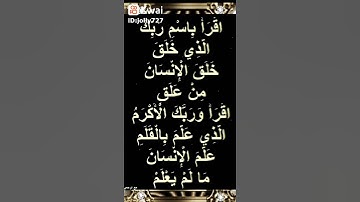 Kwai
ID:jolly727
اقْرَأْ بِاسْمِ رَبِّكَ
الَّذِي خَلَقَ
خَلَقَ الْإِنْسَانَ
مِنْ عَلَقٍ
اقْرَأْ وَرَبُّكَ الْأَكْرَمُ
الَّذِي عَلَّمَ بِالْقَلَمِ
عَلَّمَ الْإِنْسَانَ
مَا لَمْ يَعْلَمْ